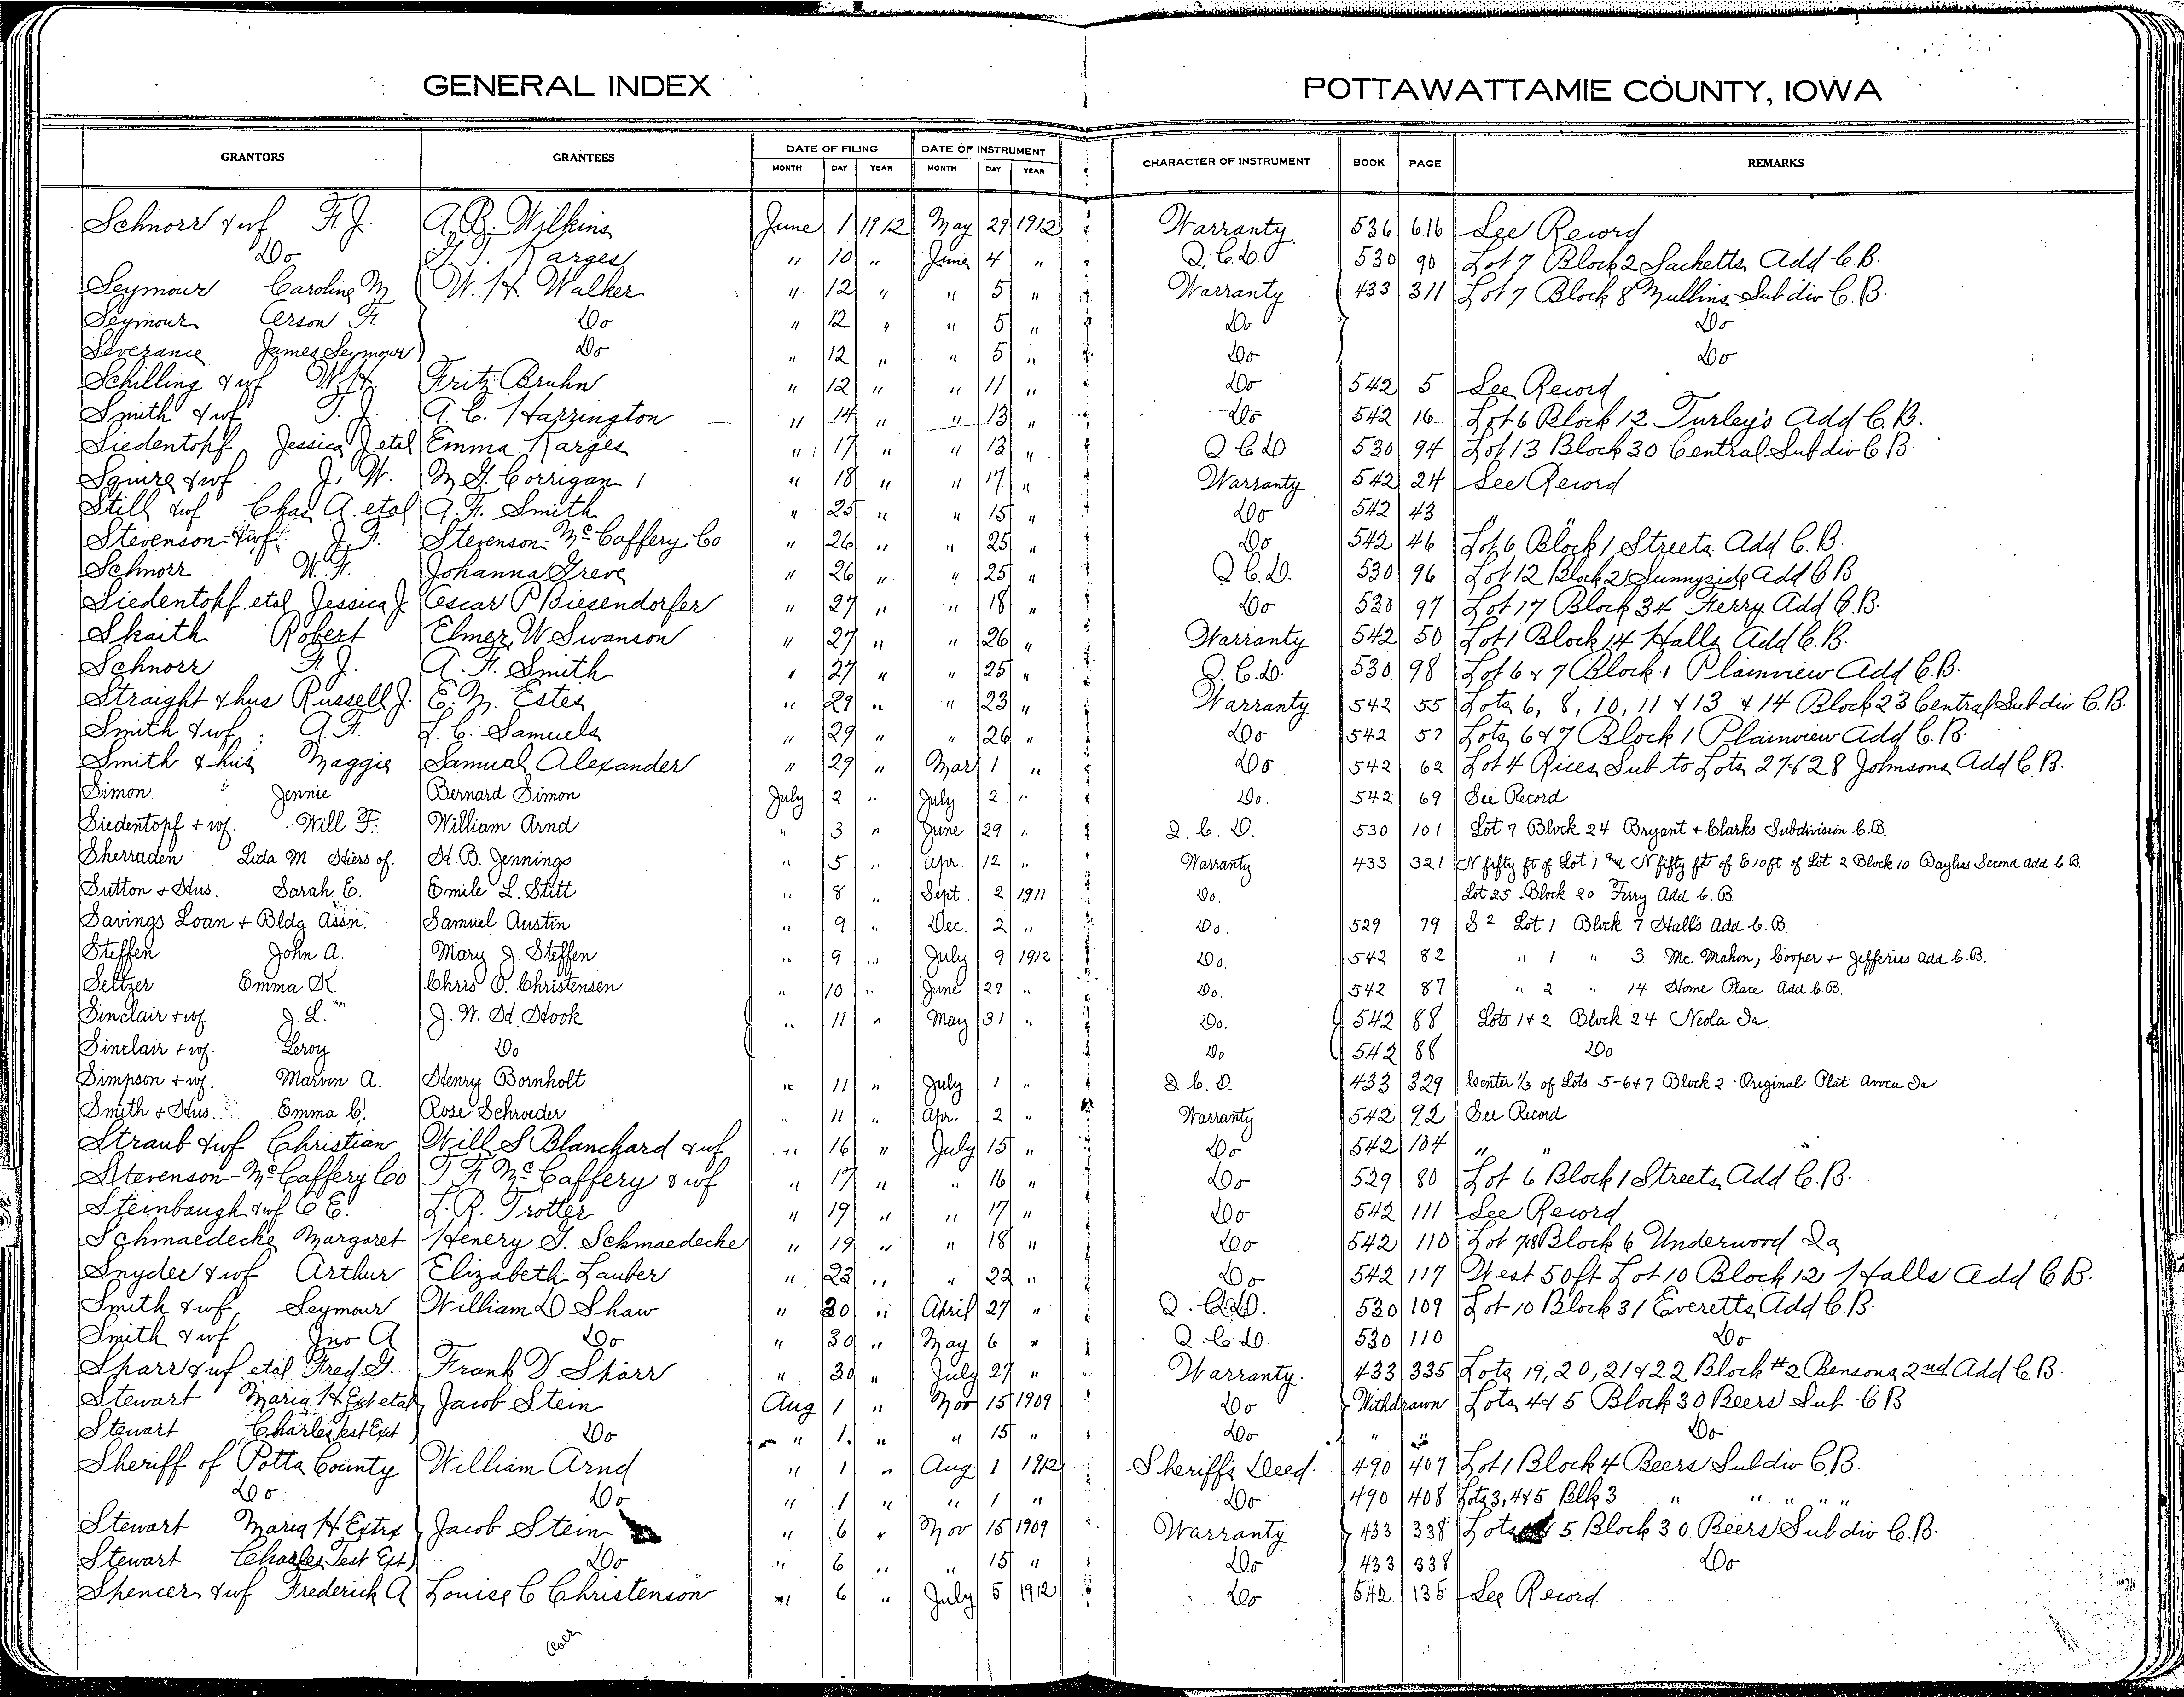 GENERAL INDEX POTTAWATTAMIE COUNTY, IOWA
DATE OF FILING DATE OF INSTRUMENT
GRANTORS GRANTEES MONTH DAY YEAR MONTH DAY YEAR CHARACTER OF INSTRUMENT BOOK PAGE REMARKS
Schnorr & wf F. J. A. B. Wilkins June 1 1912 May 29 1912 Warranty. 536 616 See Record
Do Karges " 10 " June 4 " Q. C. D. 530 90 Lot 7 Block 2 Sacketts Add C.B.
Seymour Caroline M W. H. Walker " 12 " " 5 " Warranty 433 311 Lot 7 Block 8 Mullins Subdiv C.B.
Seymour Orson F. Do " 12 " " 5 " Do Do
Severance James Seymour Do " 12 " " 5 " Do Do
Schilling & wf W. H. Fritz Bruhn " 12 " " 11 " Do 542 5 See Record
Smith & wf T. J. A. C. Harrington " 14 " " 13 " Do 542 16 Lot 6 Block 12 Turley's Add C.B.
Siedentopf Jessica J etal Emma Karges " 17 " " 13 " Q C D 530 94 Lot 13 Block 30 Central Subdiv C.B.
Squire & wf J. W. M G Corrigan " 18 " " 17 " Warranty 542 24 See Record
Still & wf Chas A. etal A. F. Smith " 25 " " 15 " Do 542 43 " "
Stevenson & wf J. F. Stevenson-McCaffery Co " 26 " " 25 " Do 542 46 Lot 6 Block 1 Streets Add C.B.
Schnorr W. F. Johanna Greve " 26 " " 25 " Q C. D. 530 96 Lot 12 Block 21 Sunnyside Add C B
Siedentopf etal Jessica J. Oscar P Biesendorfer " 27 " " 18 " Do 530 97 Lot 17 Block 34 Ferry Add C.B.
Skaith Robert Elmer W Swanson " 27 " " 26 " Warranty 542 50 Lot 1 Block 14 Halls Add C.B.
Schnorr F. J. A. F. Smith " 27 " " 25 " Q. C. D. 530 98 Lot 6 & 7 Block 1 Plainview Add C.B.
Straight & hus Russell J. E. M. Estes " 29 " " 23 " Warranty 542 55 Lots 6, 8, 10, 11 & 13 & 14 Block 23 Central Subdiv C.B.
Smith & wf A. F. L. C. Samuels " 29 " " 26 " Do 542 57 Lots 6 & 7 Block 1 Plainview Add C.B.
Smith & hus Maggie Samual Alexander " 29 " Mar 1 " Do 542 62 Lot 4 Rices Sub to Lots 27 & 28 Johnsons Add C.B.
Simon Jennie Bernard Simon July 2 " July 2 " Do. 542 69 See Record
Siedentopf + wf. Will F. William Arnd " 3 " June 29 " Q. C. D. 530 101 Lot 7 Block 24 Bryant + Clarks Subdivision C.B.
Sherraden Lida M Hiers of. H. B. Jennings " 5 " Apr. 12 " Warranty 433 321 N fifty ft of Lot 1 and N fifty ft of E 10 ft of Lot 2 Block 10 Bayliss Second Add C.B.
Sutton + Hus. Sarah E. Emile L. Stitt " 8 " Sept. 2 1911 Do. Lot 25 Block 20 Ferry Add C.B.
Savings Loan + Bldg Assn. Samuel Austin " 9 " Dec. 2 " Do. 529 79 S 2 Lot 1 Block 7 Hall's Add C.B.
Steffen John A. Mary J. Steffen " 9 " July 9 1912 Do. 542 82 " 1 " 3 Mc. Mahon, Cooper + Jefferies Add C.B.
Seltzer Emma K. Chris O. Christensen " 10 " June 29 " Do. 542 87 " 2 " 14 Home Place Add C.B.
Sinclair + wf J. L. J. W. H. Hook " 11 " May 31 " Do. 542 88 Lots 1 + 2 Block 24 Neola Ia.
Sinclair + wf. Leroy Do Do 542 88 Do
Simpson + wf. Marvin A. Henry Bornholt " 11 " July 1 " Q C. D. 433 329 Center 1/3 of Lots 5-6 + 7 Block 2 Original Plat Avoca Ia
Smith + Hus. Emma C. Rose Schroeder " 11 " Apr. 2 " Warranty 542 92 See Record
Straub & wf Christian Will S Blanchard & wf " 16 " July 15 " Do 542 104 " "
Stevenson-McCaffery Co T F McCaffery & wf " 17 " " 16 " Do 529 80 Lot 6 Block 1 Streets Add C.B.
Steinbaugh & wf C E. L. R. Trotter " 19 " " 17 " Do 542 111 See Record
Schmaedecke Margaret Henery G. Schmaedecke " 19 " " 18 " Do 542 110 Lot 7&8 Block 6 Underwood Ia
Snyder & wf Arthur Elizabeth Lauber " 23 " " 22 " Do 542 117 West 50ft Lot 10 Block 12 Halls Add C B.
Smith & wf Seymour William D Shaw " 30 " April 27 " Q. C. D. 530 109 Lot 10 Block 31 Everetts Add C.B.
Smith & wf Jno A Do " 30 " May 6 " Q C. D. 530 110 Do
Sharr & wf etal Fred G. Frank D Sharr " 30 " July 27 " Warranty. 433 335 Lots 19, 20, 21 & 22 Block #2 Bensons 2nd Add C.B.
Stewart Maria H Ext etal Jacob Stein Aug 1 " Nov 15 1909 Do Withdrawn Lots 4 & 5 Block 30 Beers Sub C B
Stewart Charles Test Ext Do " 1 " " 15 " Do " " Do
Sheriff of Potta County William Arnd " 1 " Aug 1 1912 Sheriff's Deed. 490 407 Lot 1 Block 4 Beers Subdiv C.B.
Do Do " 1 " " 1 " Do 490 408 Lots 3, 4 & 5 Blk 3 " " " "
Stewart Maria H Extrx Jacob Stein " 6 " Nov 15 1909 Warranty 433 338 Lots 5 Block 30 Beers Subdiv C.B.
Stewart Charles Test Ext Do " 6 " " 15 " Do 433 338 Do
Spencer & wf Frederick A Louise C Christenson " 6 " July 5 1912 Do 542 135 See Record
Over